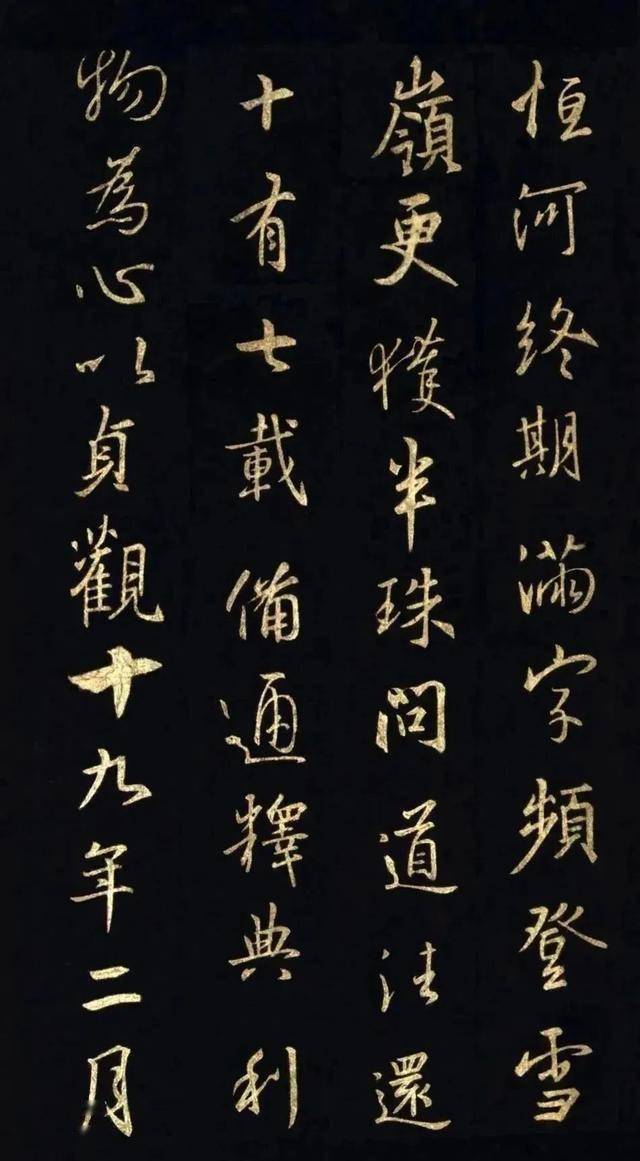 恒河終期滿字頻登雪
嶺更獲半珠問道往還
十有七載備通釋典利
物為心以貞觀十九年二月